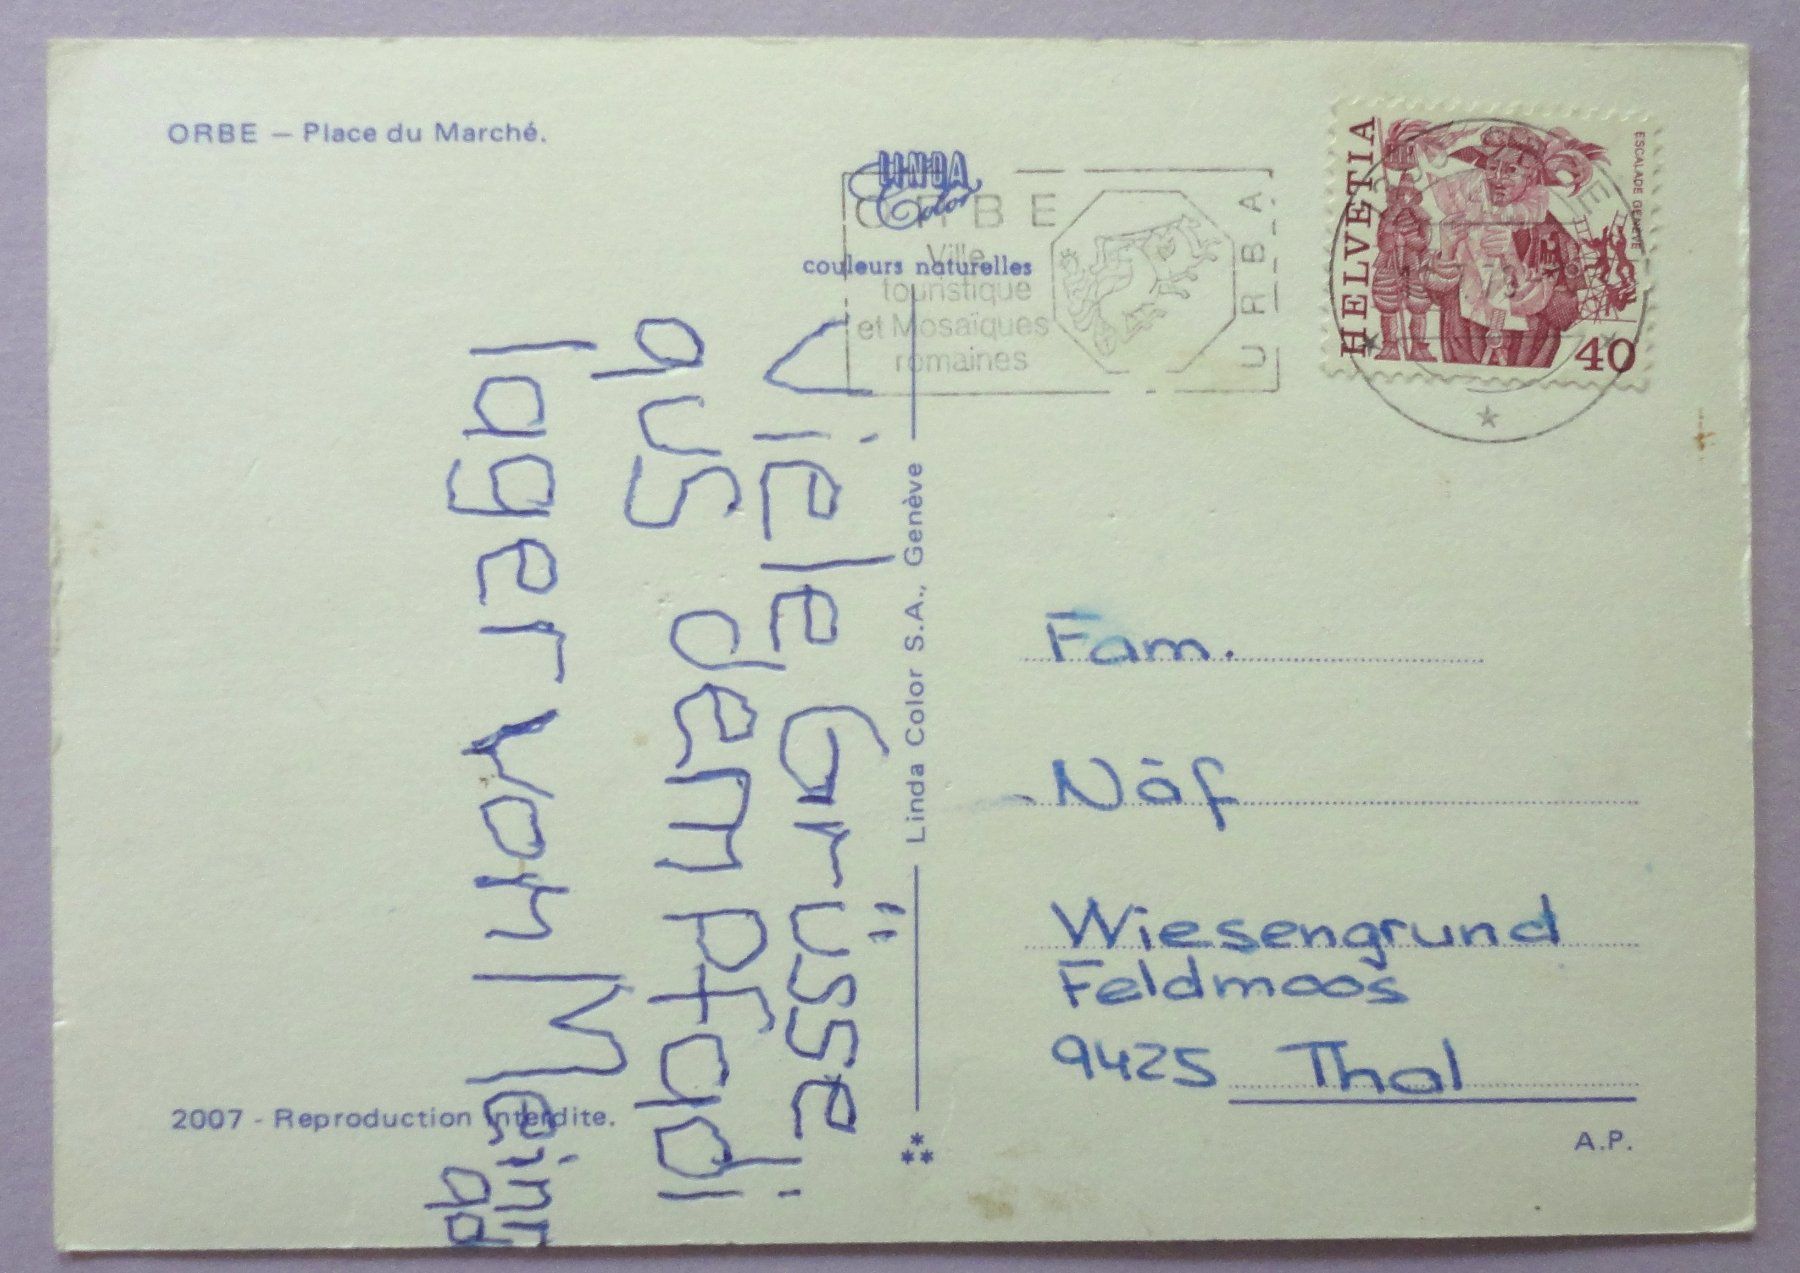 ORBE — Place du Marché.
LINDA
Color
couleurs naturelles
ORBE
Ville
touristique
et Mosaïques
romaines
URBA
HELVETIA
ESCALADE GENÈVE
40
Viele Grüsse
aus dem Pfadi
lager vom Meinr
ad
Linda Color S.A., Genève
Fam.
Näf
Wiesengrund
Feldmoos
9425 Thal
2007 - Reproduction interdite.
A.P.